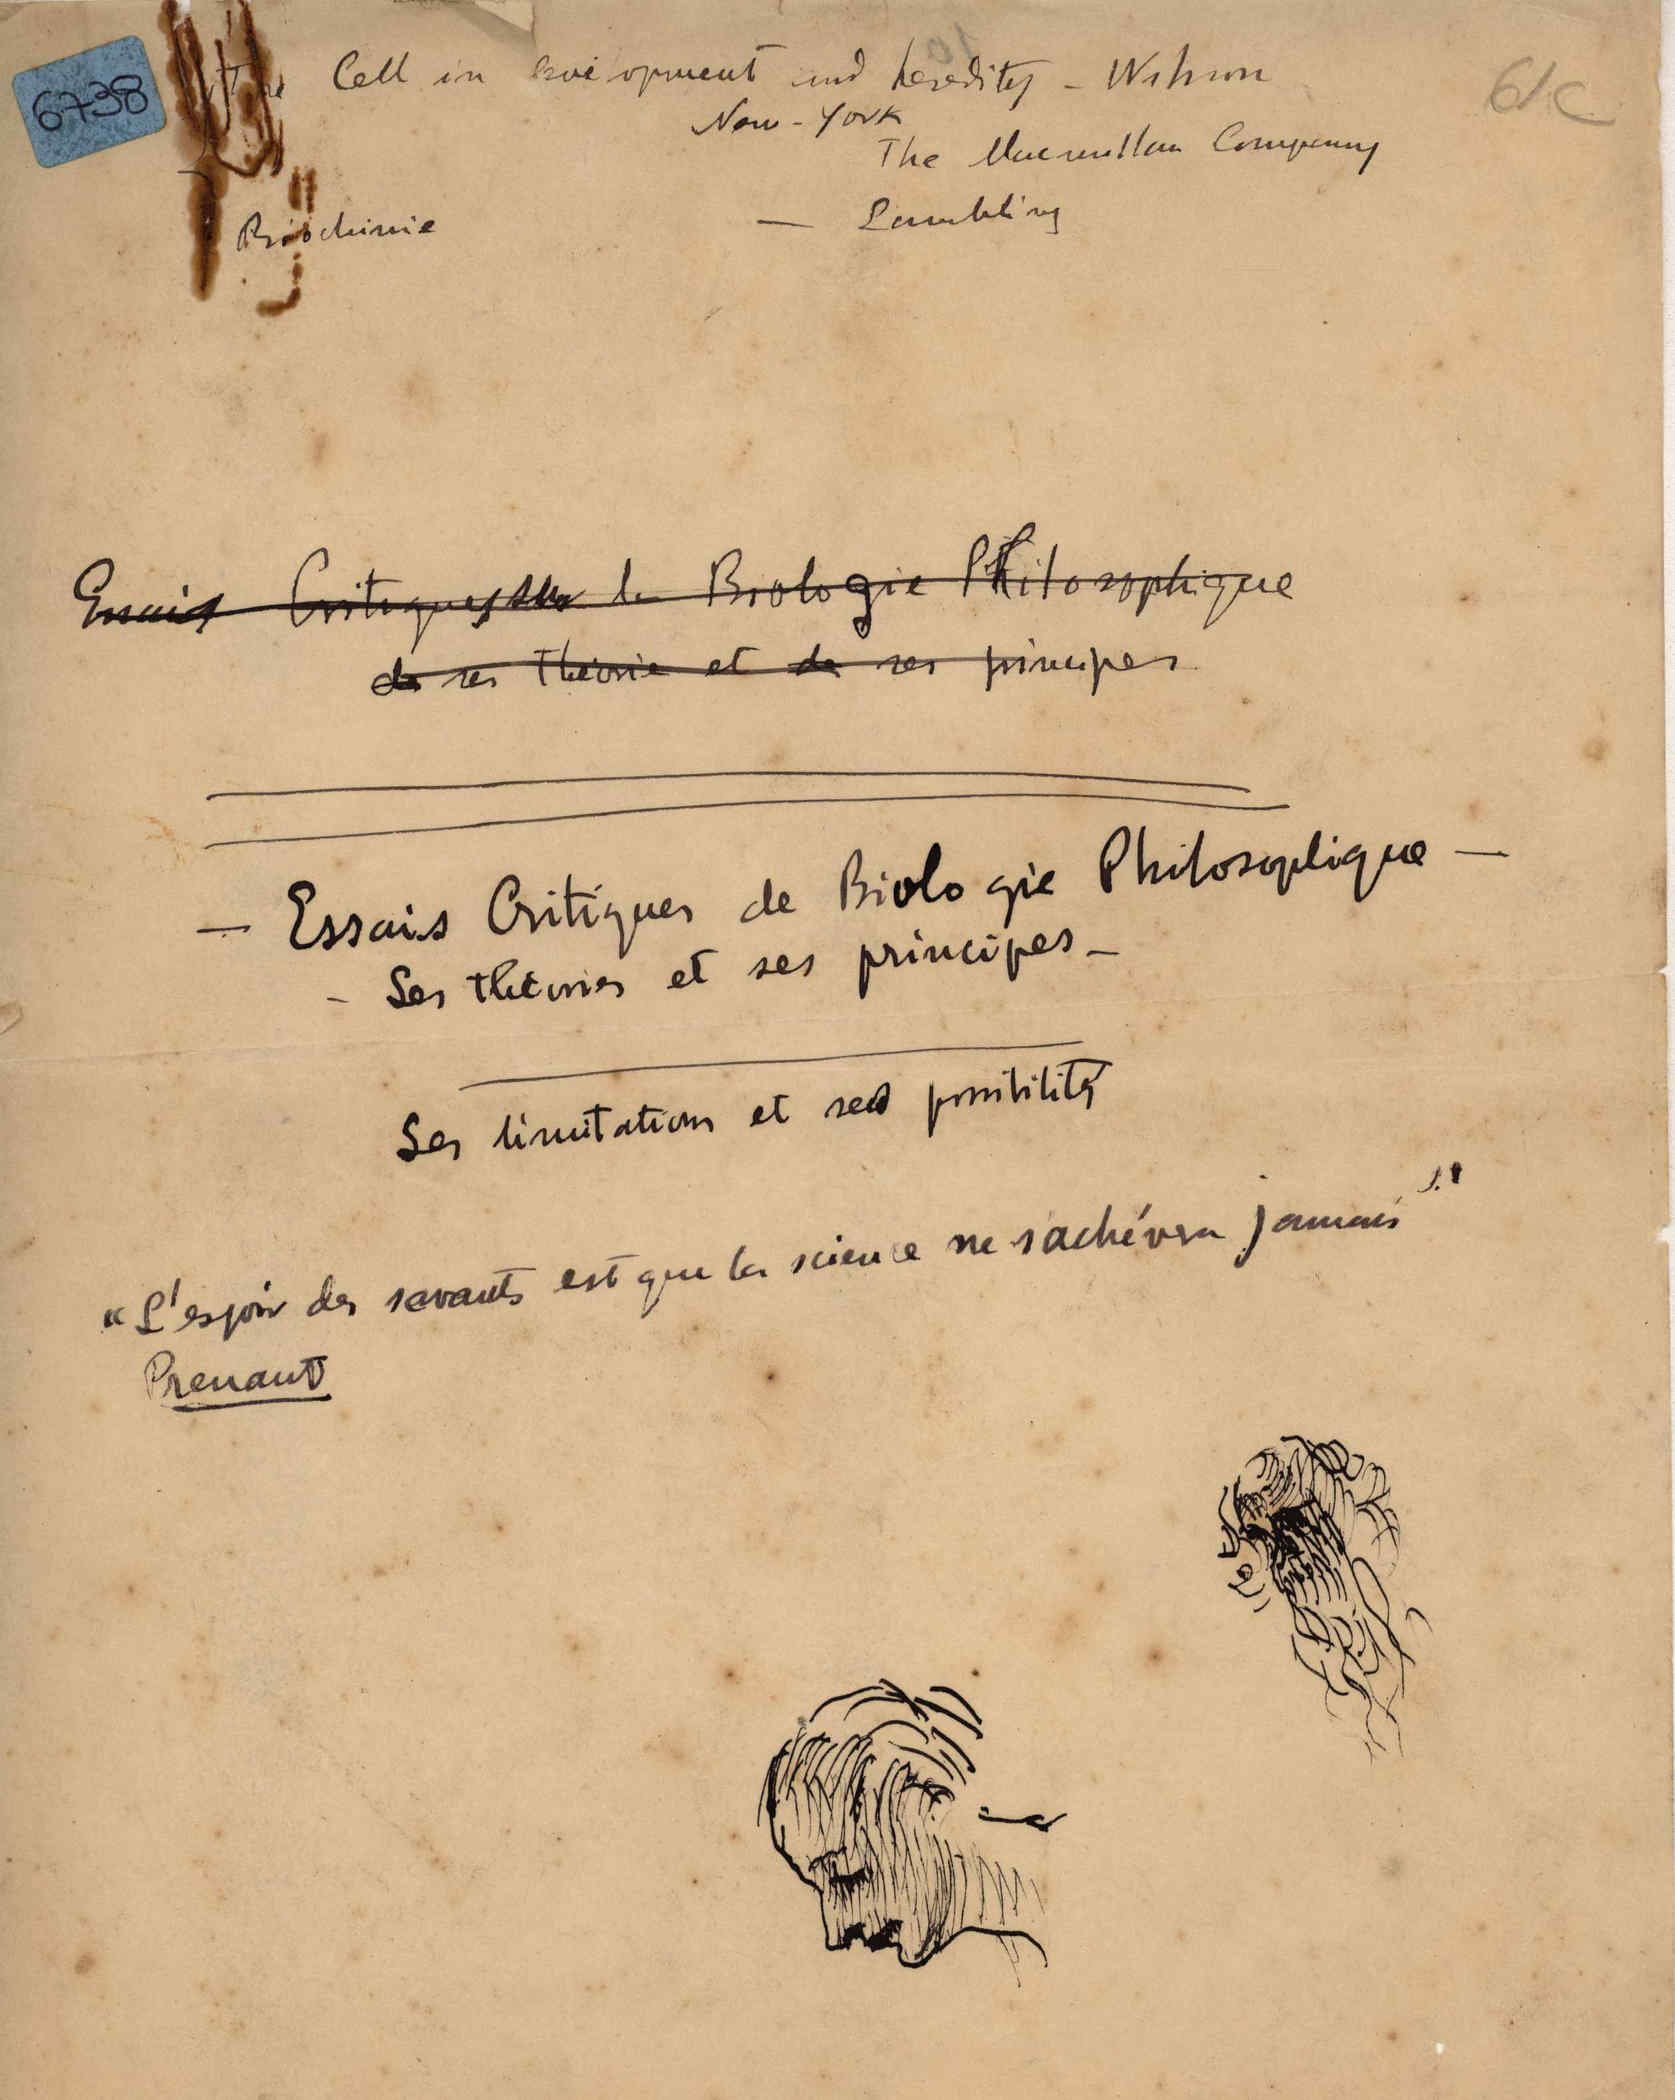 6738
The Cell in development and heredity - Wilson
61c
New-York
The Macmillan Company
Biochimie — Lambling
Essais Critiques sur la Biologie Philosophique
de ses théorie et de ses principes
— Essais Critiques de Biologie Philosophique —
- Ses théories et ses principes -
Ses limitations et ses possibilités
"L'espoir des savants est que la science ne s'achévera jamais"
Prenant